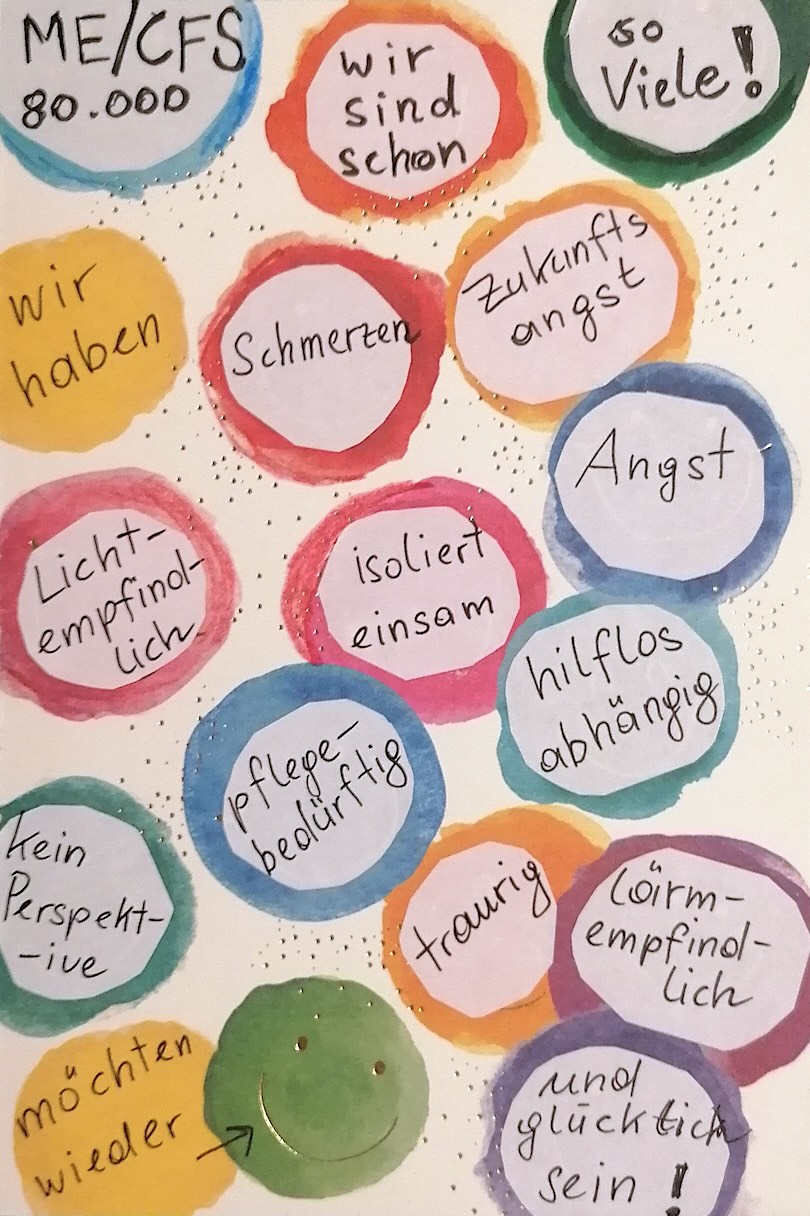 ME/CFS
80.000
wir
sind
schon
so
Viele!
wir
haben
Schmerzen
Zukunfts
angst
Angst
Licht-
empfind-
lich
isoliert
einsam
hilflos
abhängig
pflege-
bedürftig
kein
Perspekt-
-ive
traurig
Lärm-
empfind-
lich
möchten
wieder →
und
glücklich
sein!